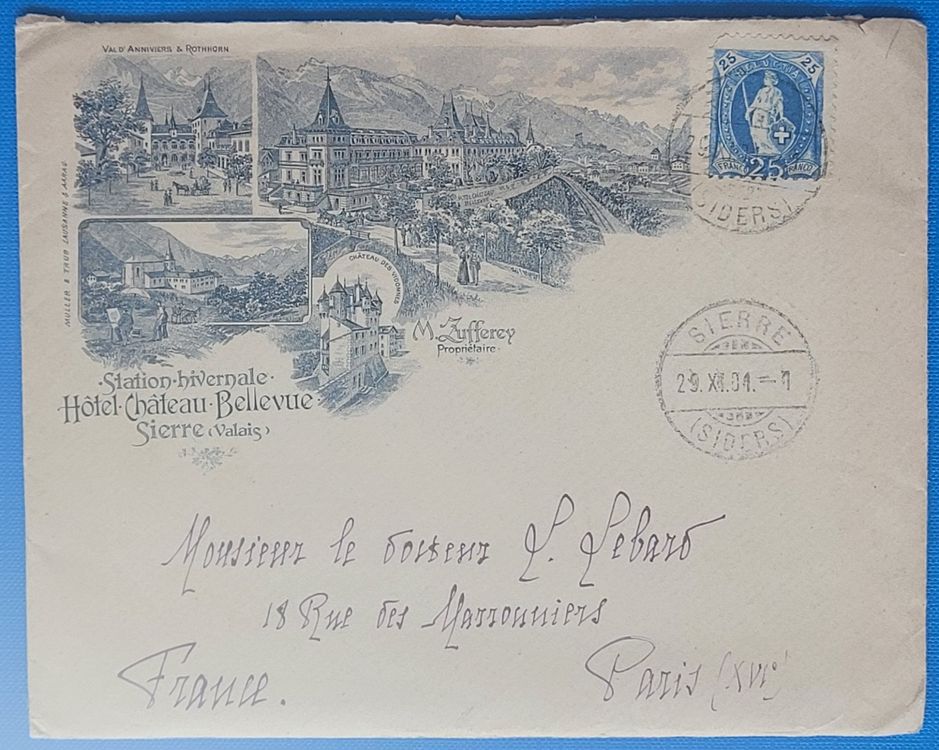 VAL D'ANNIVIERS & ROTHHORN
MULLER & TRUB LAUSANNE & AARAU
CHÂTEAU DES VIDOMNES
M. Zufferey
Propriétaire
Station-hivernale
Hôtel-Château-Bellevue
Sierre (Valais)
25 HELVETIA 25
FRANCO 25 FRANCO
(SIDERS)
SIERRE
29.XI.01.-1
(SIDERS)
Monsieur le docteur L. Lebard
18 Rue des Marronniers
Paris (XVIe)
France.